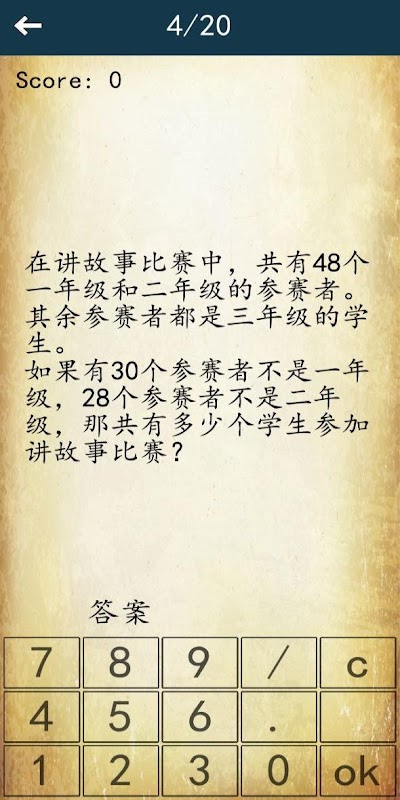 4/20
Score: 0
在讲故事比赛中，共有48个
一年级和二年级的参赛者。
其余参赛者都是三年级的学
生。
如果有30个参赛者不是一年
级，28个参赛者不是二年
级，那共有多少个学生参加
讲故事比赛？
答案
7 8 9 / c
4 5 6 .
1 2 3 0 ok